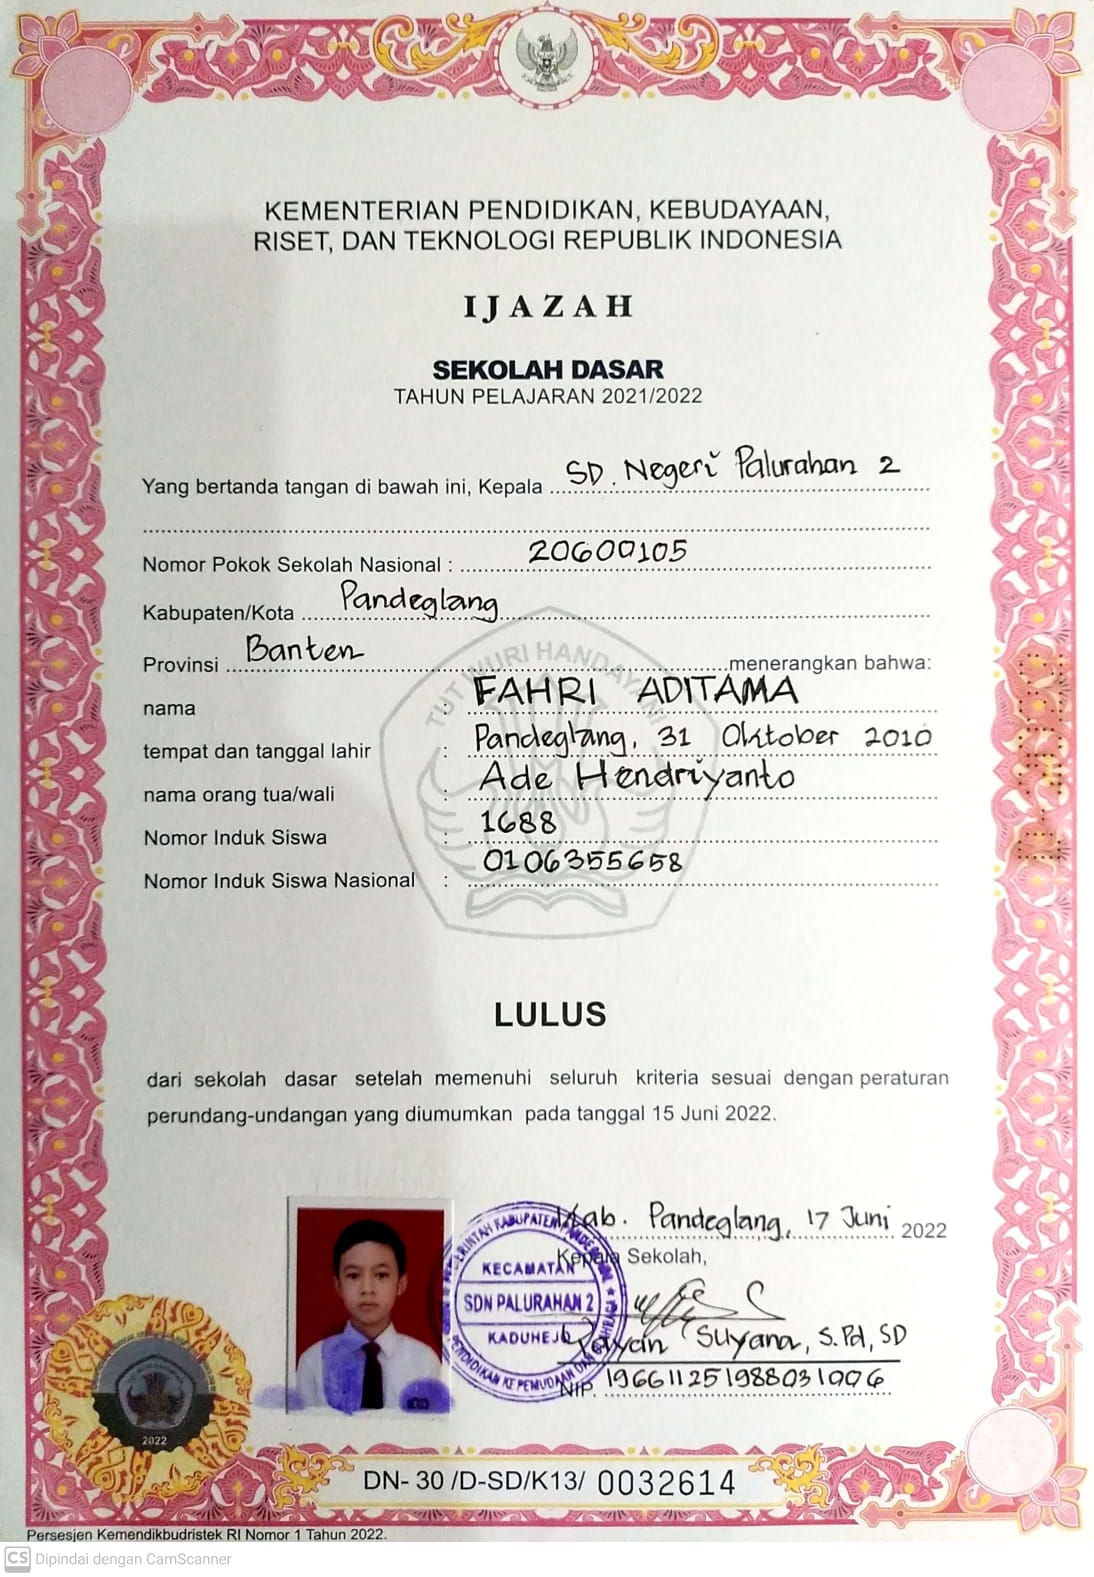 KEMENTERIAN PENDIDIKAN, KEBUDAYAAN,
RISET, DAN TEKNOLOGI REPUBLIK INDONESIA
IJAZAH
SEKOLAH DASAR
TAHUN PELAJARAN 2021/2022
Yang bertanda tangan di bawah ini, Kepala SD. Negeri Palurahan 2
Nomor Pokok Sekolah Nasional : 20600105
Kabupaten/Kota Pandeglang
Provinsi Banten menerangkan bahwa:
TUT WURI HANDAYANI
nama : FAHRI ADITAMA
tempat dan tanggal lahir : Pandeglang, 31 Oktober 2010
nama orang tua/wali : Ade Hendriyanto
Nomor Induk Siswa : 1688
Nomor Induk Siswa Nasional : 0106355658
LULUS
dari sekolah dasar setelah memenuhi seluruh kriteria sesuai dengan peraturan
perundang-undangan yang diumumkan pada tanggal 15 Juni 2022.
Kab. Pandeglang, 17 Juni 2022
Kepala Sekolah,
KECAMATAN
SDN PALURAHAN 2
KADUHEJO
Suyana, S.Pd, SD
NIP. 196611251988031006
2022
DN- 30 /D-SD/K13/ 0032614
Persesjen Kemendikbudristek RI Nomor 1 Tahun 2022.
CS Dipindai dengan CamScanner